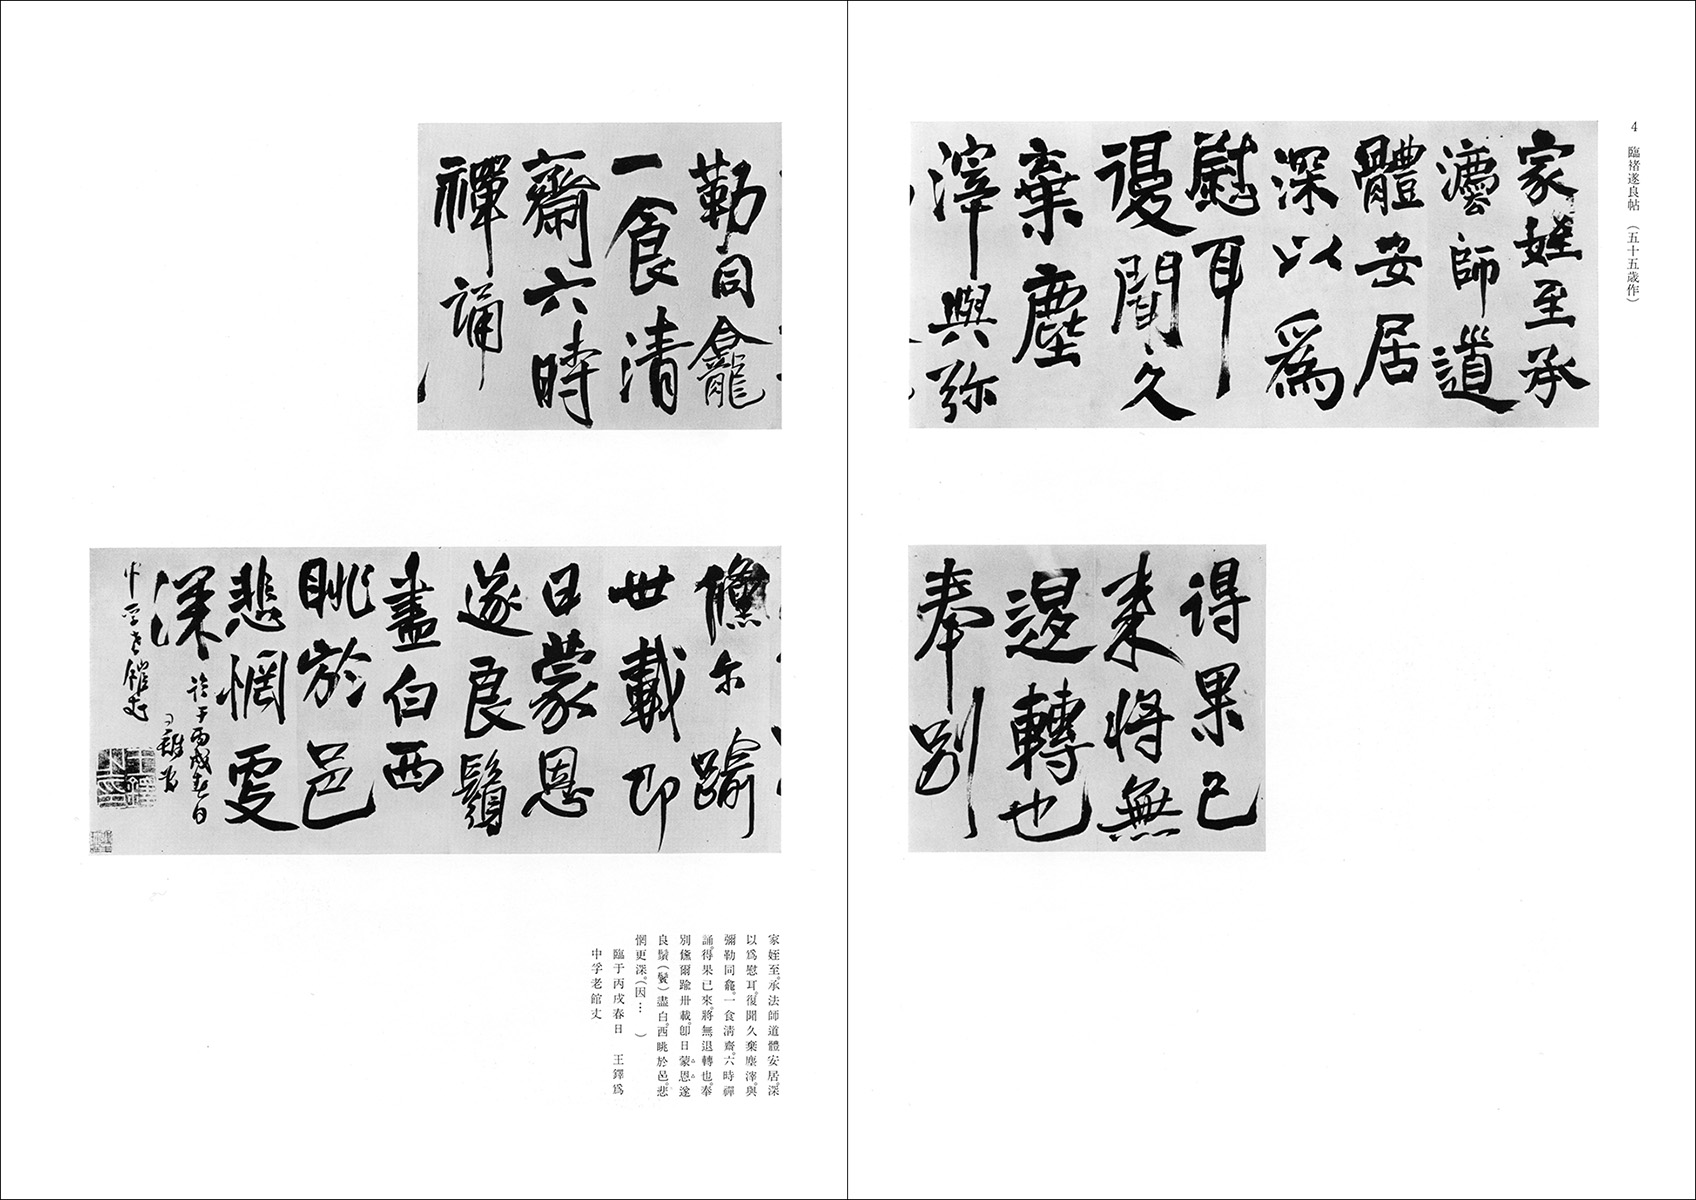 4 臨褚遂良帖（五十五歳作）
家姪至承
灋師道
體安居
深以爲
慰耳
復聞久
棄塵
滓與弥
勒同龕
一食清
齋六時
禪誦
得果已
來將無
退轉也
奉別
儵尔踰
世載即
日蒙恩
遂良鬚
盡白西
眺於邑
悲惘更
深
臨于丙戌春日
王鐸爲
中孚老館丈
家姪至。承法師道體安居。深
以爲慰耳。復聞久棄塵滓。與
彌勒同龕。一食淸齋。六時禪
誦。得果已來。將無退轉也。奉
別儵爾踰卅載。卽日蒙恩。遂
良鬚（鬢）盡白。西眺於邑。悲
惘更深。（因… ）
臨于丙戌春日 王鐸爲
中孚老館丈